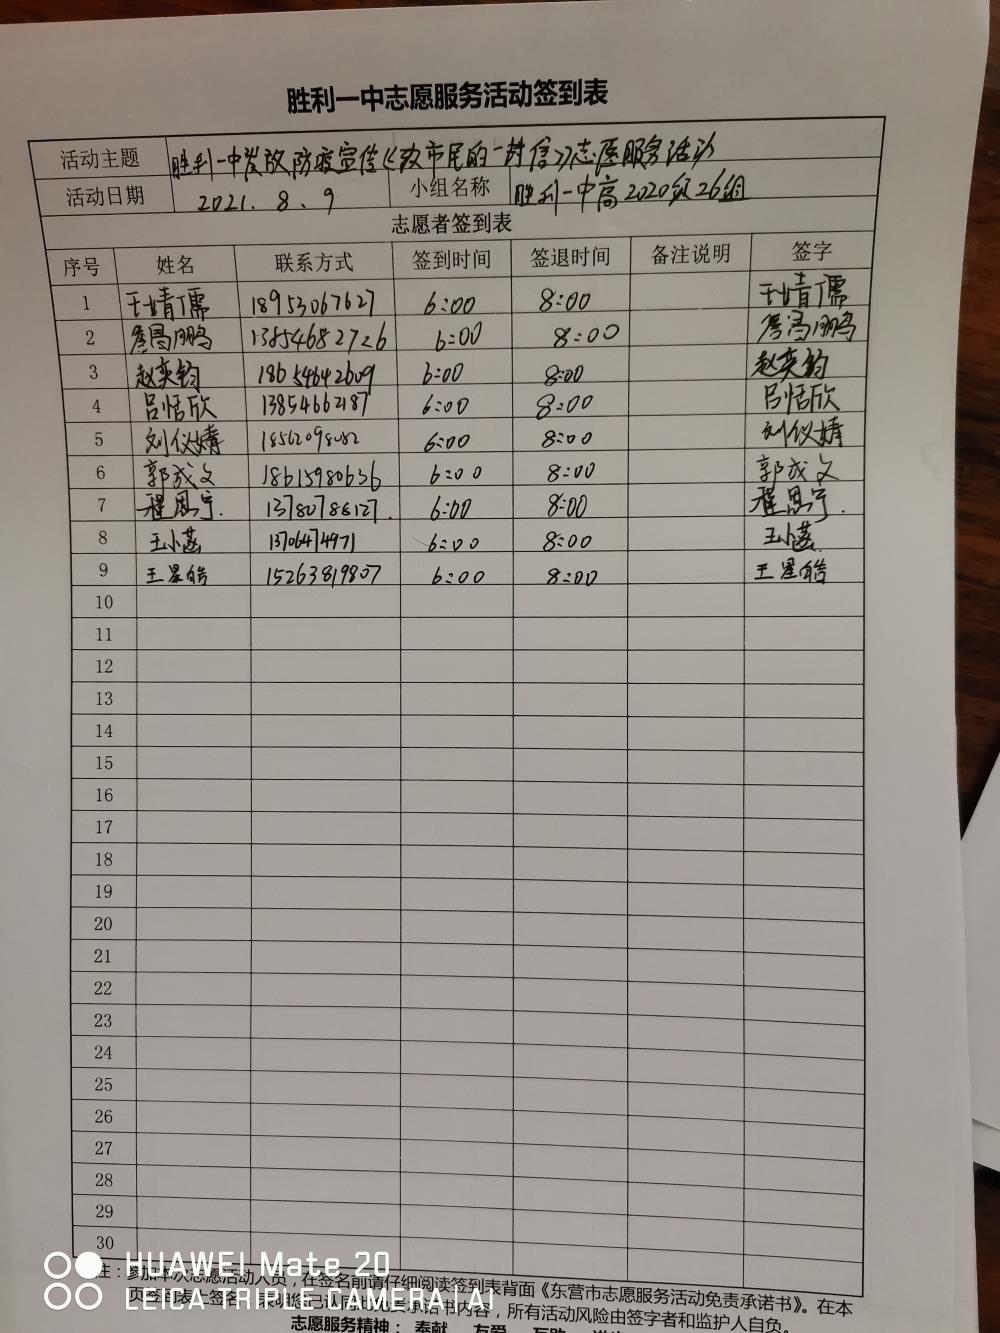 胜利一中志愿服务活动签到表
活动主题 胜利一中发放防疫宣传《致市民的一封信》志愿服务活动
活动日期 2021.8.9 小组名称 胜利一中高2020级26组
志愿者签到表
序号 姓名 联系方式 签到时间 签退时间 备注说明 签字
1 于婧儒 18953067627 6:00 8:00 于婧儒
2 詹昌鹏 13854682726 6:00 8:00 詹昌鹏
3 赵奕钧 18654642609 6:00 8:00 赵奕钧
4 吕恬欣 13854662187 6:00 8:00 吕恬欣
5 刘仪婧 6:00 8:00 刘仪婧
6 郭成文 18615980636 6:00 8:00 郭成文
7 翟恩宁. 6:00 8:00 翟恩宁.
8 王小菡 6:00 8:00 王小菡
9 王星皓 15263819807 6:00 8:00 王星皓
10
11
12
13
14
15
16
17
18
19
20
21
22
23
24
25
26
27
28
29
30
注：参加本次志愿活动人员，在签名前请仔细阅读签到表背面《东营市志愿服务活动免责承诺书》。在本
内容，所有活动风险由签字者和监护人自负。
志愿服务精神：奉献 友爱
HUAWEI Mate 20
LEICA TRIPLE CAMERA | AI